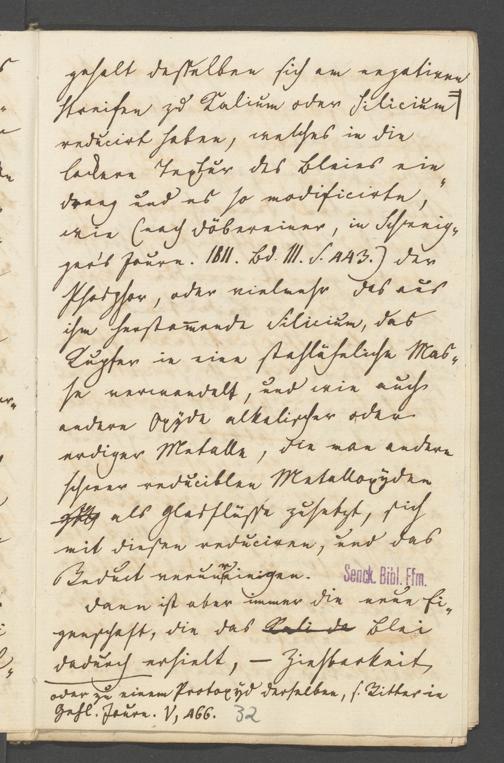 gehalt desselben sich am negativen
Streifen zu Kalium oder Silicium
reducirt haben, welches in die
lockere Textur des Bleies ein„
drang und es so modificirte,
wie (nach Döbereiner, in Schweig„
ger's Journ. 1811. Bd. III. S. 443.) der
Phosphor, oder vielmehr das aus
ihm herstam̄ende Silicium, das
Kupfer in eine stahlähnliche Mas„
se verwandelt, und wie auch
andere Oxyde alkalischer oder
erdiger Metalle, die man andern
schwer reduciblen Metalloxyden
als Glasflüsse zusetzt, sich
mit diesen reduciren, und das
Reduct verunreinigen.
Senck. Bibl. Ffm.
Dann ist aber immer die neue Ei„
genschaft, die das Kali da Blei
dadurch erhielt, — Ziehbarkeit
oder zu einem Protoxyd derselben, s. Ritter in
Gehl. Journ. V, 466. 32